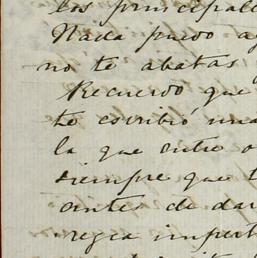 los principal
Nada puedo a
no te abatas y
Recuerdo que
te escribió una
la que entre o
siempre que t
antes de dar
regla impert